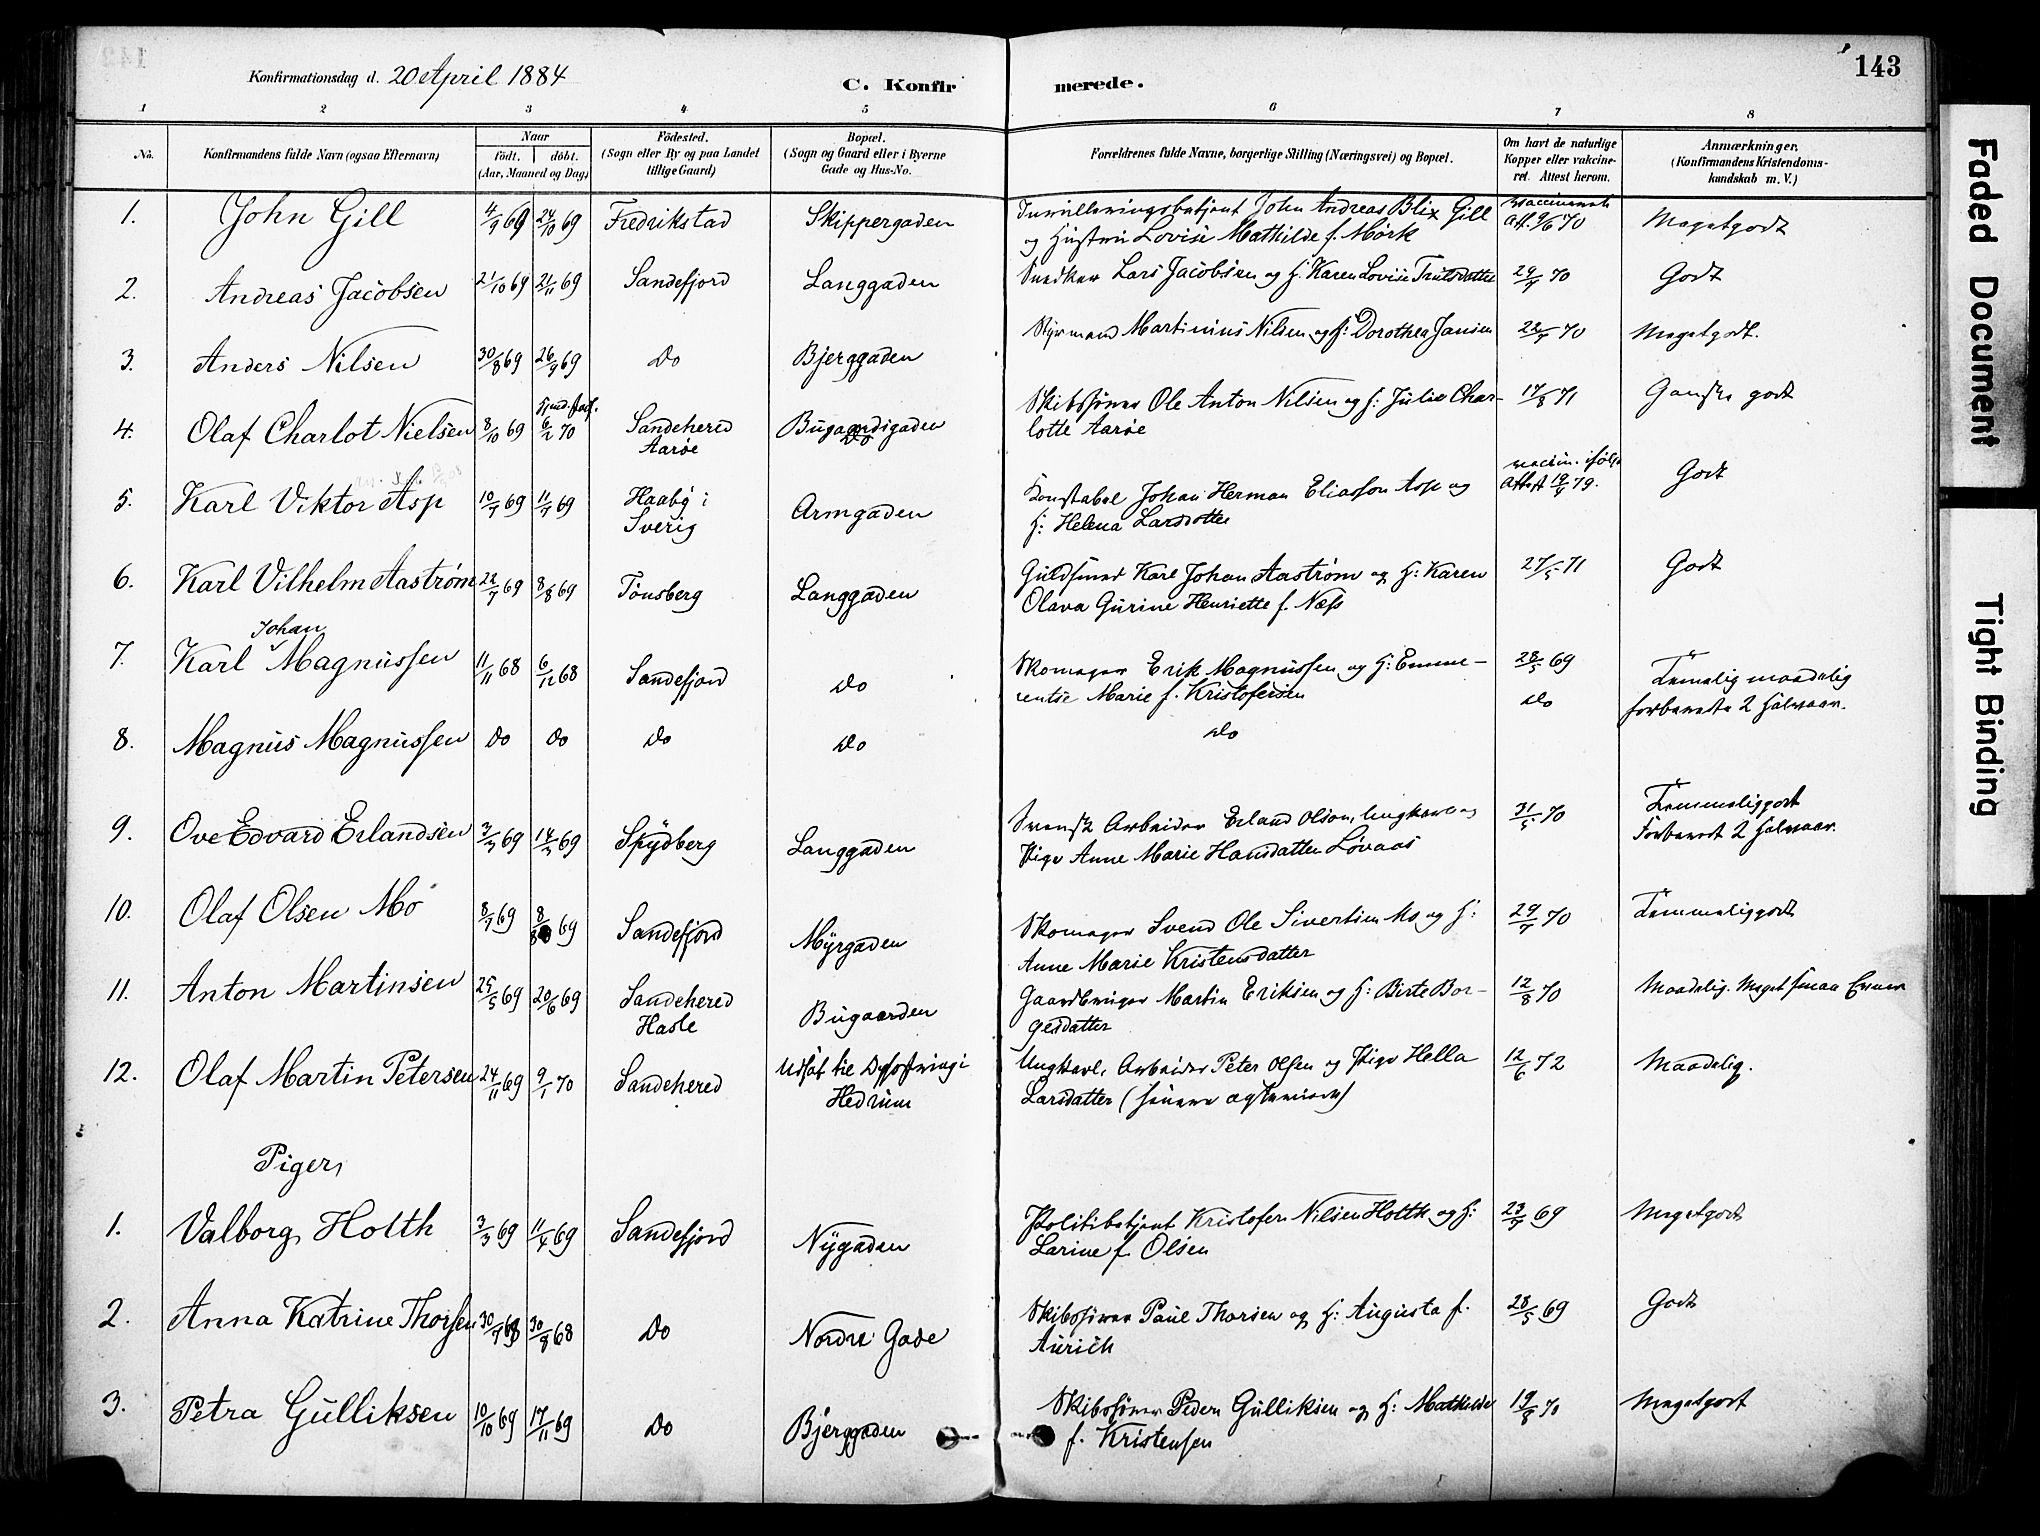 143
Konfirmationsdag d. 20 April 1884
C. Konfirmerede.
1 2 3 4 5 6 7 8
No. Konfirmandens fulde Navn (ogsaa Efternavn) Naar født. døbt. (Aar, Maaned og Dag) Födested. (Sogn eller By og paa Landet tillige Gaard) Bopæl. (Sogn og Gaard eller i Byerne Gade og Hus-No. Forældrenes fulde Navne, borgerlige Stilling (Næringsvei) og Bopæl. Om havt de naturlige Kopper eller vakcineret. Attest herom. Anmærkninger. (Konfirmandens Kristendomskundskab m. V.)
1. John Gill 4/9 69 24/10 69 Fredrikstad Skippergaden John Andreas Blix Gill Att. 9/6 70 Megetgodt
og Hustru Lovise Mathilde f. Mørk
2. Andreas Jacobsen 21/10 69 21/11 69 Sandefjord Langgaden Snedker Lars Jacobsen og H: Karen Lovise Trulsdatter 29/7 70 Godt
3. Anders Nilsen 30/8 69 26/9 69 Do Bjerggaden Styrmand Martinius Nilsen og H: Dorothea Jansen 22/7 70 Megetgodt.
4. Olaf Charlot Nielsen 8/10 69 6/2 70 Sandehered Aarøe Skibsfører Ole Anton Nilsen og H: Julie Char-
lotte Aarøe 17/8 71 Ganske godt
5. Karl Viktor Asp 10/7 69 11/7 69 Haabÿ i Sverig Armgaden Konstabel Johan Herman Eliasson Asp og
H: Helena Larsdotter Attest 19/4 79. Godt
6. Karl Vilhelm Aastrøm 22/7 69 8/8 69 Tønsberg Langgaden Guldsmed Karl Johan Aastrøm og H: Karen
Olava Gurine Henriette f. Næss 27/5 71 Godt
7. Karl Johan Magnussen 11/11 68 6/12 68 Sandefjord Do Skomager Erik Magnussen og H: Emme-
rentse Marie f. Kristofersen 28/5 69 Temelig maadelig
forberedte 2 Halvaar.
8. Magnus Magnussen Do Do Do Do Do Do
9. Ove Edvard Erlandsen 3/3 69 14/3 69 Spÿdberg Langgaden Svensk Arbeider Erland Olson, Ungkarl og
Pige Anne Marie Hansdatter Løvaas 31/5 70 Temmeliggodt
Forberedt 2 Halvaar.
10. Olaf Olsen Mo 8/7 69 8/8 69 Sandefjord Mÿrgaden Skomager Svend Ole Sivertsen Mo og H:
Anne Marie Kristensdatter 29/7 70 Temmeliggodt
11. Anton Martinsen 25/5 69 20/6 69 Sandehered Hasle Bugaarden Gaardbruger Martin Eriksen og H: Birte Bor-
gesdatter 12/8 70 Maadelig. Meget smaa Evner
12. Olaf Martin Petersen 24/11 69 9/1 70 Sandehered Udsat til Opfostring i
Hedrum Ungkarl, Arbeider Peter Olsen og Pige Hella
Larsdatter (senere ægteviede) 12/6 72 Maadelig.
Piger,
1. Valborg Holth 3/3 69 11/4 69 Sandefjord Nÿgaden Politibetjent Kristofer Nilsen Holth og H:
Larine f. Olsen 23/7 69 Megetgodt
2. Anna Katrine Thorsen 30/7 68 30/8 68 Do Nordre Gade Skibsfører Paul Thorsen og H: Augusta f.
Aurich 28/5 69 Godt
3. Petra Gulliksen 10/10 69 17/11 69 Do Bjerggaden Skibsfører Peder Gulliksen og H: Mathilde
f. Kristensen 19/8 70 Megetgodt
Faded Document
Tight Binding